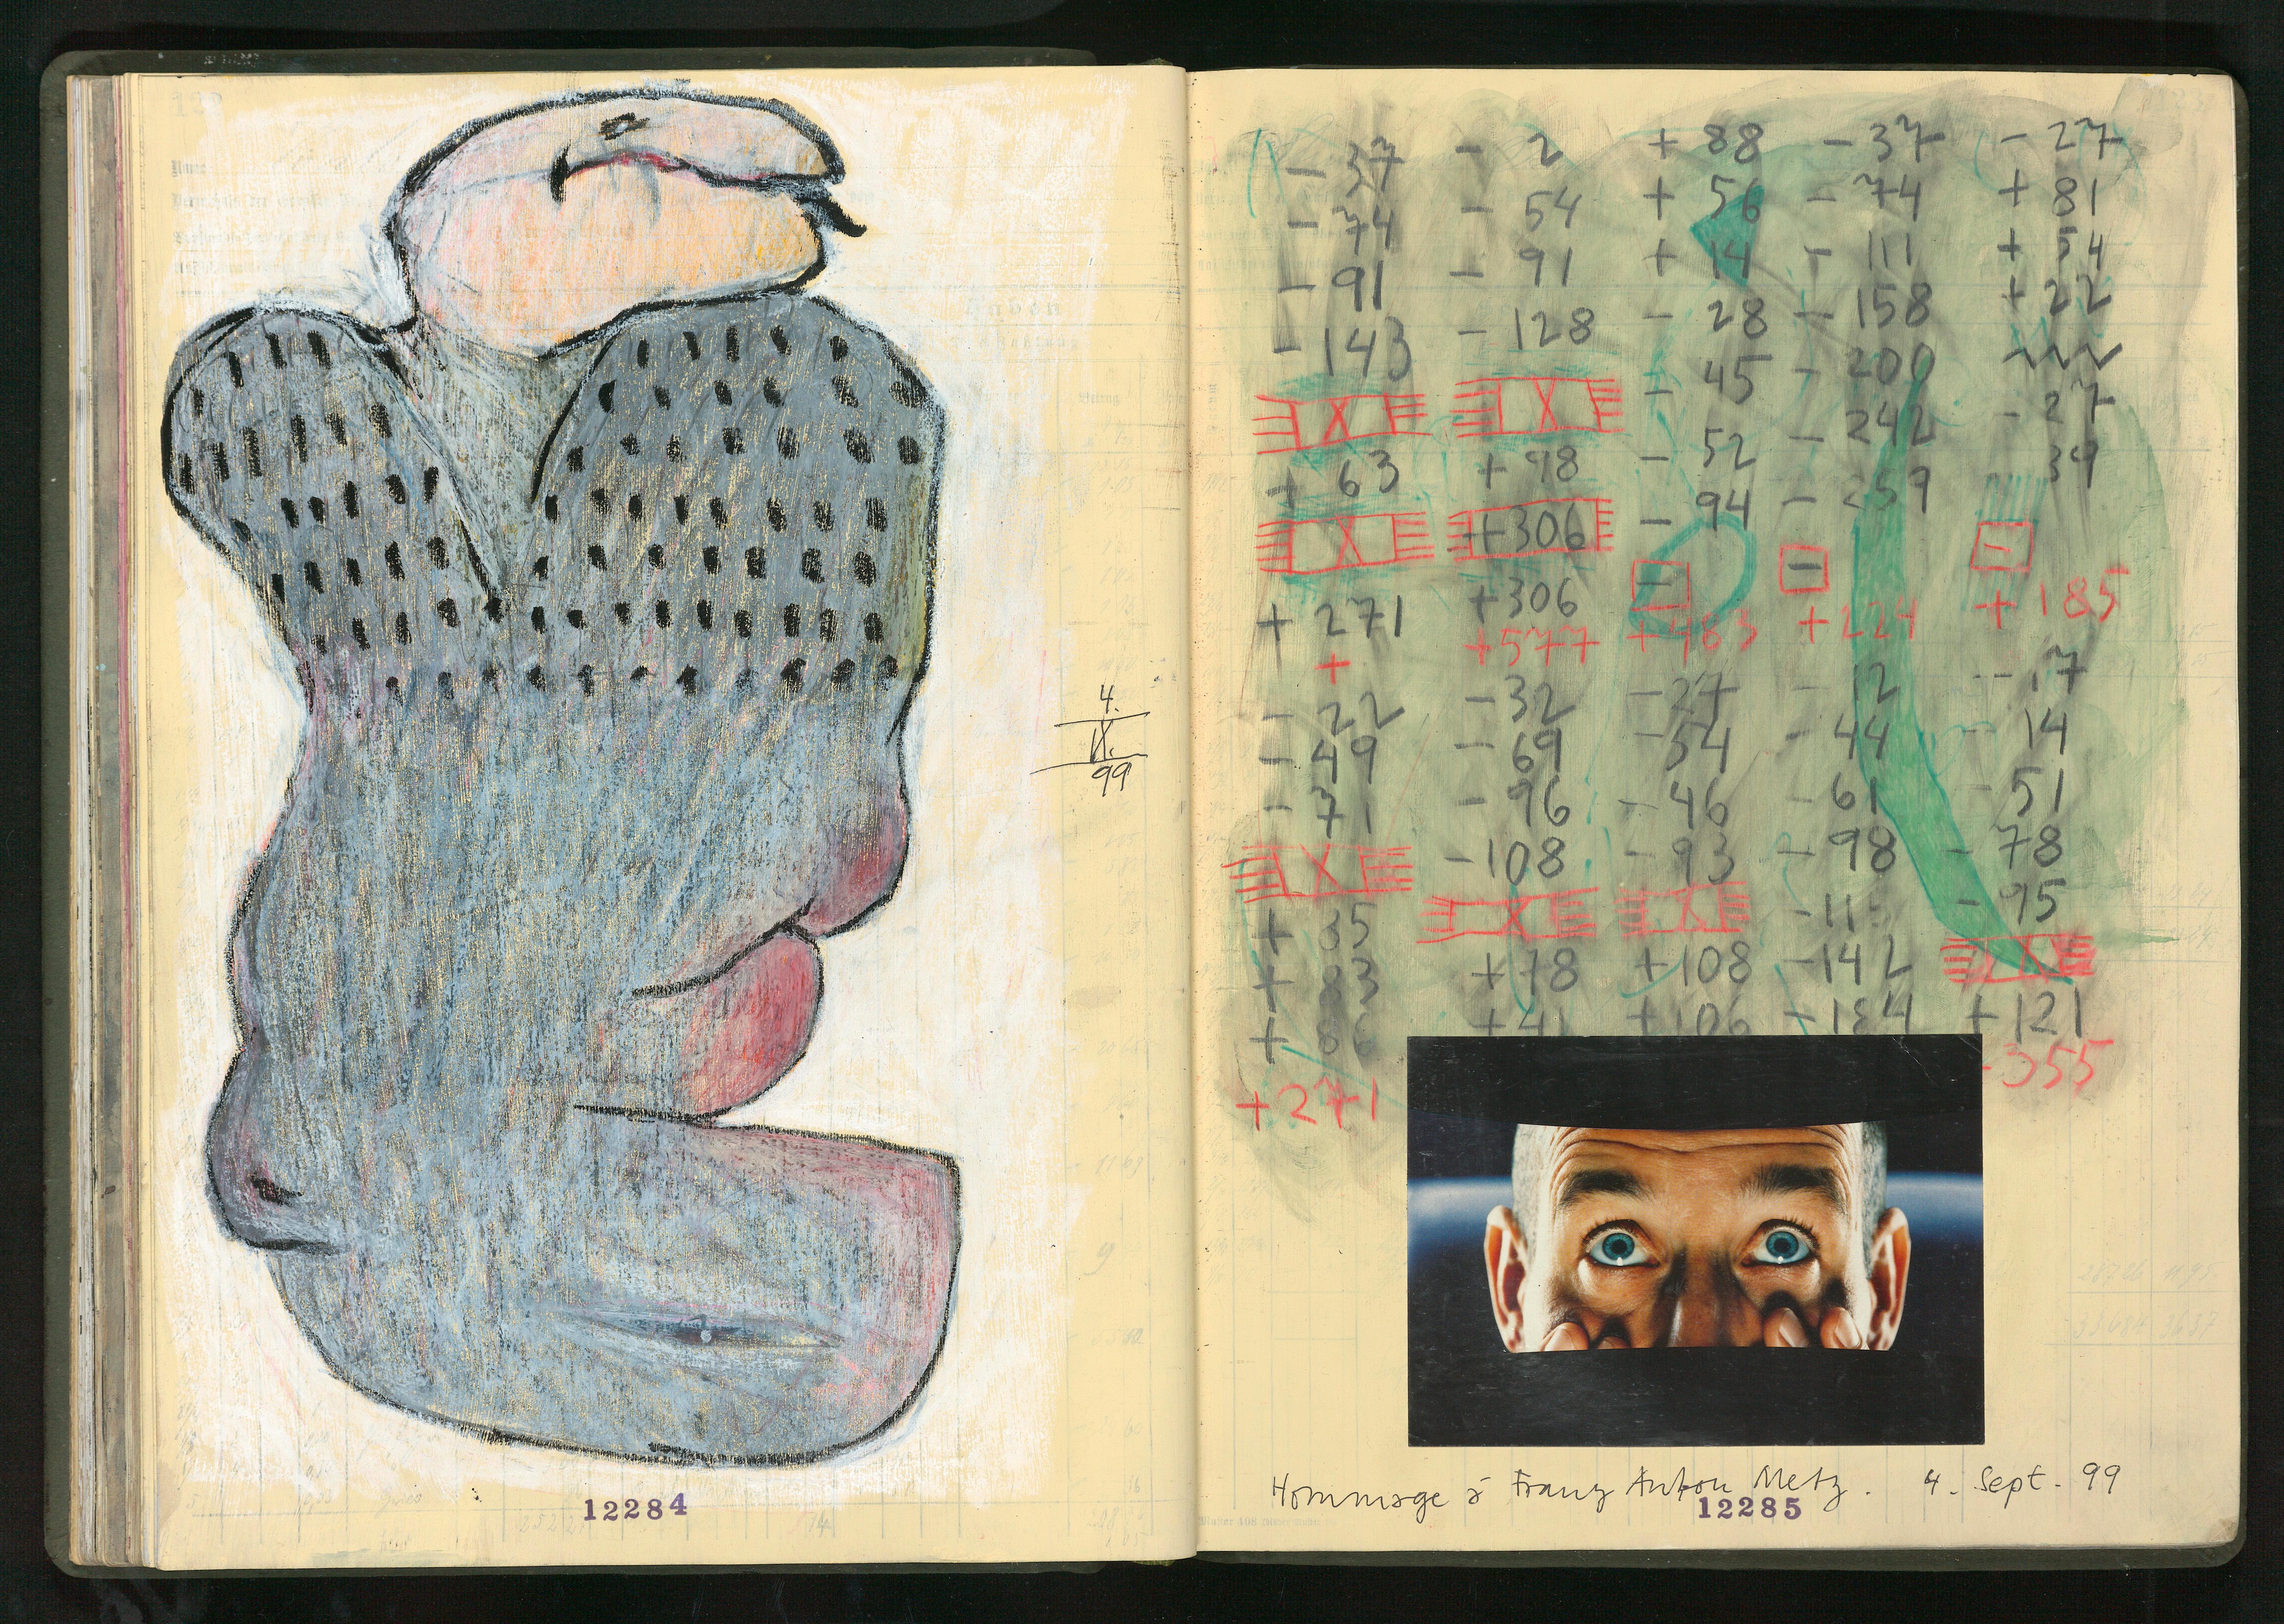 4.
IX.
99
12284
- 37 - 2 + 88 - 37 - 27
- 74 - 54 + 56 - 74 + 81
- 91 - 91 + 14 - 111 + 54
- 143 - 128 - 28 - 158 + 22
X X - 45 - 200
+ 63 + 98 - 52 - 242 - 27
X +306 - 94 - 259 39
+ 271 +306 - - -
+ +577 +463 +224 + 185
- 22 -32 -27 - 12 - 17
- 49 - 69 - 54 - 44 - 14
- 71 - 96 - 46 - 61 - 51
X -108 - 93 - 98 - 78
X X - 95
+ 78 +108 -142 X
+ 41 +106 -184 +121
+271 355
Hommage à Franz Anton Metz. 4. Sept. 99
12285